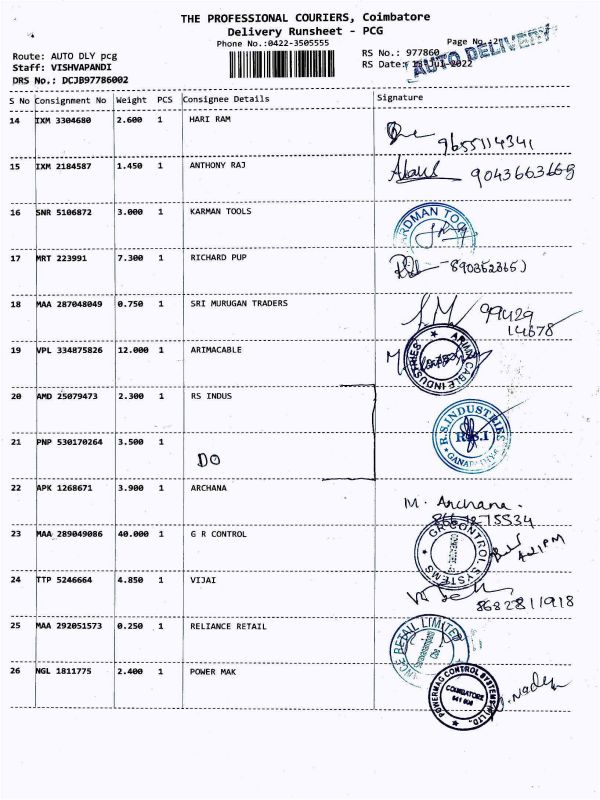 THE PROFESSIONAL COURIERS, Coimbatore
Delivery Runsheet - PCG
Phone No.:0422-3505555
Page No.:2
AUTO DELIVERY
Route: AUTO DLY pcg
RS No.: 977860
Staff: VISHVAPANDI
RS Date: Jul 2022
DRS No.: DCJB97786002
S No Consignment No Weight PCS Consignee Details Signature
14 IXM 3304680 2.600 1 HARI RAM
9655114341
15 IXM 2184587 1.450 1 ANTHONY RAJ
9043663669
16 SNR 5106872 3.000 1 KARMAN TOOLS
17 MRT 223991 7.300 1 RICHARD PUP
18 MAA 287048049 0.750 1 SRI MURUGAN TRADERS
99429
14678
19 VPL 334875826 12.000 1 ARIMACABLE
ARIMA CABLE INDUSTRIES
20 AMD 25079473 2.300 1 RS INDUS
R.S.INDUSTRIES
R.S.I
21 PNP 530170264 3.500 1
DO
22 APK 1268671 3.900 1 ARCHANA
M. Archana.
23 MAA 289049086 40.000 1 G R CONTROL
GR CONTROL SYSTEMS
24 TTP 5246664 4.850 1 VIJAI
8682811918
25 MAA 292051573 0.250 1 RELIANCE RETAIL
RETAIL LIMITED
26 NGL 1811775 2.400 1 POWER MAK
POWERMAG CONTROL SYSTEMS
COIMBATORE